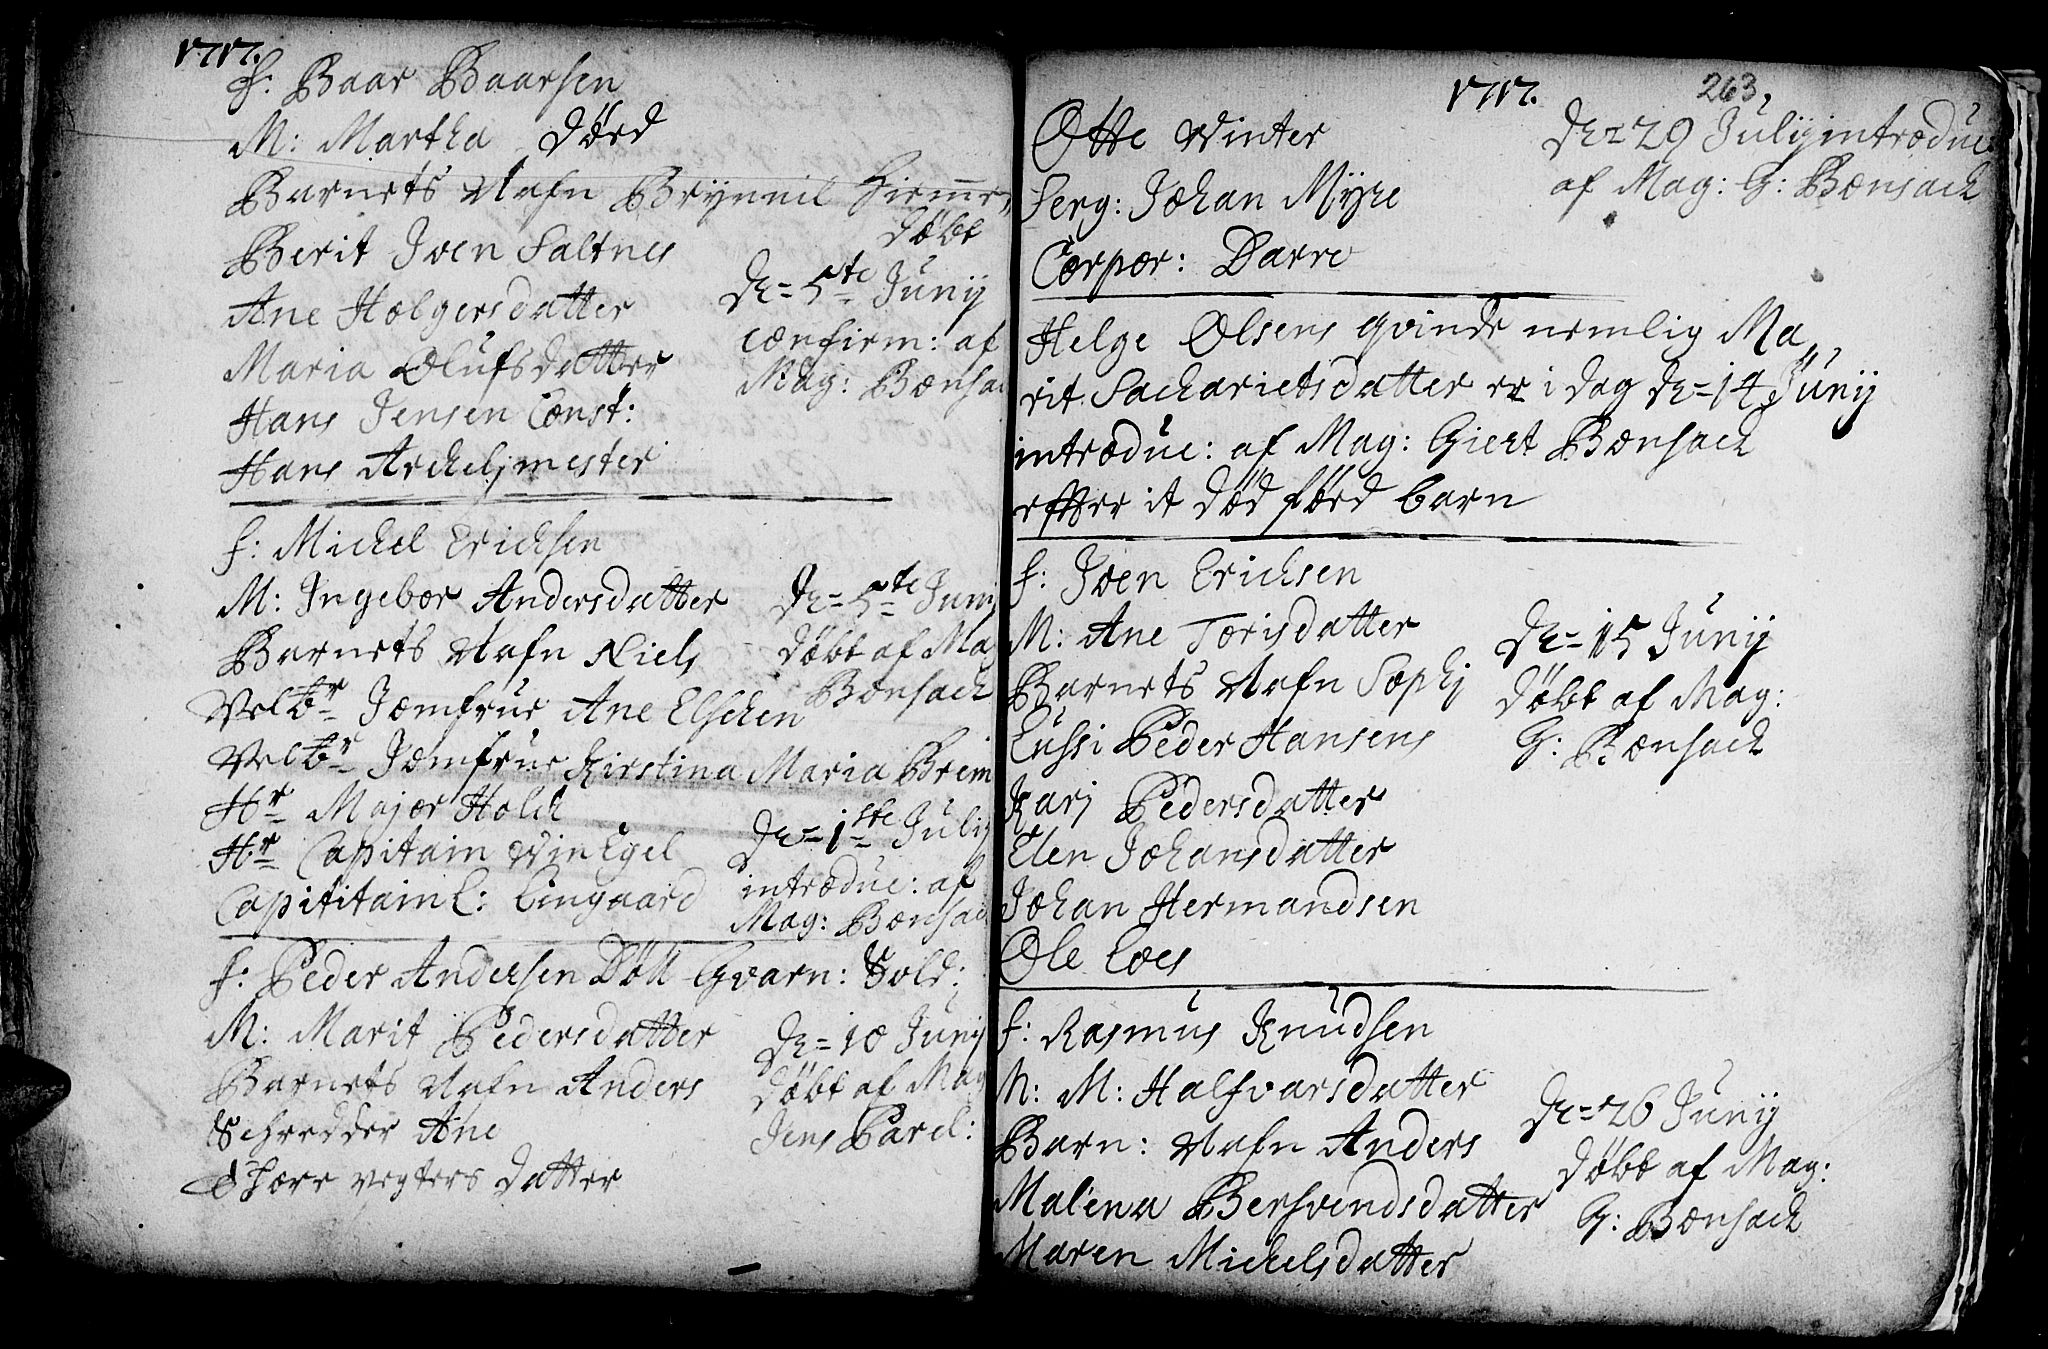 1717.
f: Baar Baarsen
M: Martha dörd
Barnets Nafn Brynnil hieme
döbt
Berit Joen Saltnes
Ane Holgersdatter
Maria Olufsdatter
Hans Jensen Const:
Hans Arckelj mester
de= 5te Junij
confirm: af
Mag: Bonsac
f: Michel Erichsen
M: Ingebor Andersdatter
Barnets Nafn Niels
Velbr Jomfrue Ane Elschen
Velbr Jomfrue Kirstina Maria Brem
Hr Major Holck
Hr Capitain VinEgel
Capititainl: Lingaard
de= 5te Junij
döbt af Mag
Bonsach
de= 1ste Julij
introduc: af
Mag: Bonsac
f: Peder Andersen Döll Gvarn: Sold:
M: Marit Pedersdatter
Barnets Nafn Anders
Schredder Ane
vegters datter
de= 10 Junij
döbt af Mag
Jens Parel:
1717.
263
Otte Vinter
Serg: Johan Myre
Corpor: Darre
de= 29 Julij introduc
af Mag: G: Bonsach
Helge Olsens qvinde nemlig Ma
rit Sacharietsdatter er i dag de= 14 Junij
introduc: af Mag: Giert Bonsach
efter it död förd barn
f: Joen Erichsen
M: Ane Torisdatter
Barnets Nafn Sophj
Lussi Peder Hansens
Karj Pedersdatter
Elen Johansdatter
Johan Hermandsen
Ole Loes
de= 15 Junij
döbt af Mag:
G: Bonsach
f: Rasmus Knudsen
M: M: Halfvarsdatter
Barn: Nafn Anders
Malena Bersvendsdatter
Maren Michelsdatter
de= 26 Junij
döbt af Mag:
G: Bonsach